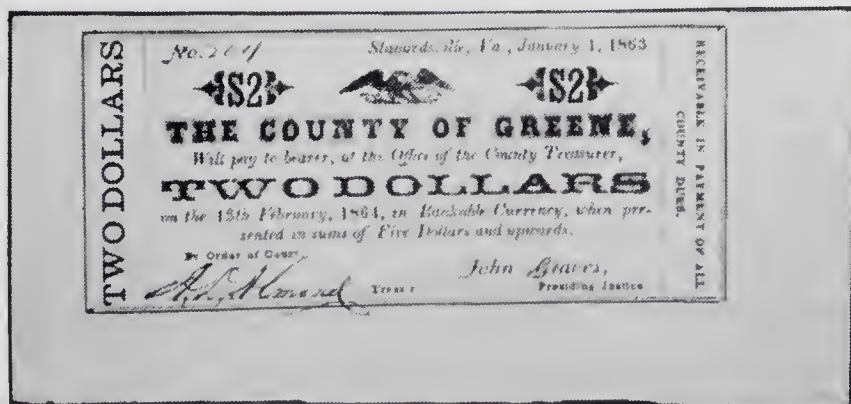 TWO DOLLARS
No. 204
Stanardsville, Va., January 1, 1863
$2 $2
THE COUNTY OF GREENE,
Will pay to bearer, at the Office of the County Treasurer,
TWO DOLLARS
on the 15th February, 1864, in Bankable Currency, when pre-
sented in sums of Five Dollars and upwards.
By Order of Court,
Treas'r
John Graves,
Presiding Justice
RECEIVABLE IN PAYMENT OF ALL
COUNTY DUES.